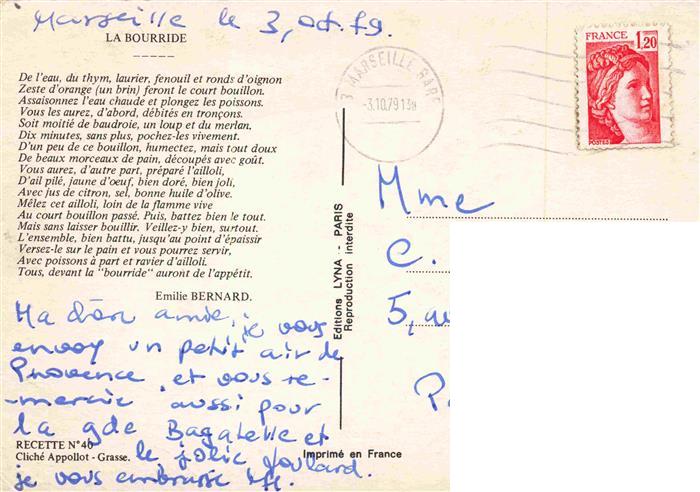 Marseille le 3, oct. 79.
LA BOURRIDE
De l'eau, du thym, laurier, fenouil et ronds d'oignon
Zeste d'orange (un brin) feront le court bouillon.
Assaisonnez l'eau chaude et plongez les poissons.
Vous les aurez, d'abord, débités en tronçons.
Soit moitié de baudroie, un loup et du merlan.
Dix minutes, sans plus, pochez-les vivement.
D'un peu de ce bouillon, humectez, mais tout doux
De beaux morceaux de pain, découpés avec goût.
Vous aurez, d'autre part, préparé l'ailloli,
D'ail pilé, jaune d'œuf, bien doré, bien joli,
Avec jus de citron, sel, bonne huile d'olive.
Mêlez cet ailloli, loin de la flamme vive
Au court bouillon passé. Puis, battez bien le tout.
Mais sans laisser bouillir. Veillez-y bien, surtout.
L'ensemble, bien battu, jusqu'au point d'épaissir
Versez-le sur le pain et vous pourrez servir,
Avec poissons à part et ravier d'ailloli.
Tous, devant la "bourride" auront de l'appétit.
Emilie BERNARD.
Ma chère amie, je vous
envoy un petit air de
Provence, et vous re-
-mercie aussi pour
la gde Bagatelle et
le jolie foulard.
je vous embrasse
RECETTE N°40
Cliché Appollot - Grasse.
Imprimé en France
Editions LYNA - PARIS
Reproduction interdite
MARSEILLE GARE
-3.10.79
FRANCE 1,20
POSTES
Mme
C.
5,